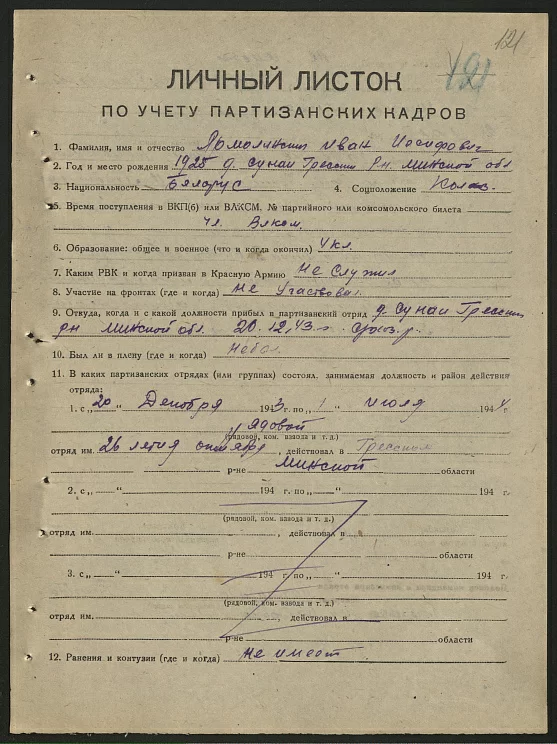 121
121
ЛИЧНЫЙ ЛИСТОК
ПО УЧЕТУ ПАРТИЗАНСКИХ КАДРОВ
1. Фамилия, имя и отчество Ломолинский Иван Иосифович
2. Год и место рождения 1925 д. Сунаи Гресский Р-н. Минской обл
3. Национальность Беларус 4. Соцположение Колхоз.
5. Время поступления в ВКП(б) или ВЛКСМ, № партийного или комсомольского билета
чл. Влксм.
6. Образование: общее и военное (что и когда окончил) 4 кл.
7. Каким РВК и когда призван в Красную Армию Не Служил
8. Участие на фронтах (где и когда) Не Участвовал.
9. Откуда, когда и с какой должности прибыл в партизанский отряд д. Сунаи Гресский
рн Минской обл. 20.12.43 г.
10. Был ли в плену (где и когда) Небыл
11. В каких партизанских отрядах (или группах) состоял, занимаемая должность и район действия
отряда:
1. с „20“ Декабря 1943 г. по „1“ Июля 1944 г.
Рядовой
(рядовой, ком. взвода и т. д.)
отряд им. 26 летия октября, действовал в Гресском
р-не Минской области
2. с „ “ 194 г. по „ “ 194 г.
(рядовой, ком. взвода и т. д.)
отряд им. , действовал в
р-не области
3. с „ “ 194 г. по „ “ 194 г.
(рядовой, ком. взвода и т. д.)
отряд им. , действовал в
р-не области
12. Ранения и контузии (где и когда) Не имеет